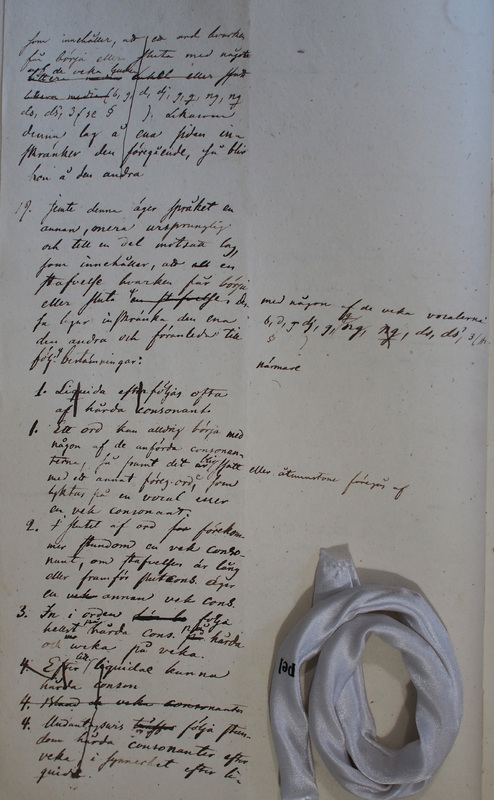 som innehåller, att ett ord hvarken
får börja eller sluta med någon
af de veka
media (b, g, d, dj, g, g, ng, ng
ds, dś, 3 ſ sc ś ). Likasom
denna lag å ena sidan in-
skränker den föregående, så blir
hon å den andra
19. Jemte denna äger språket en
annan, mera ursprunglig
och till en del motsatt lag,
som innehåller, att all en
stafvelse hvarken får börja
eller sluta en stafvelse,
med någon af de veka vocalerna
b, d, g dj, g, ng, ng, ds, dś, 3
ś
lagar inskränka den ena
den andra och föranleda till
följ. bestämningar:
närmare
1. Liquida efterföljas ofta
af hårda consonant.
1. Ett ord kan alldrig börja med
någon af de anförda consonan-
terna, så framt det ej slutt
eller åtminstone föregås af
med ett annat föreg. ord, som
lyktas på en vocal eller
en vek consonant.
2. I slutet af ord for förekom-
mer stundom en vek conso-
nant, om stafvelsen är lång
eller framför slutcons. äger
en vek annan vek cons.
3. In i orden följa
helst på hårda cons. hårda
och veka på veka.
4. Efter liquidae kunna
hårda conson
4. Bland de veka consonanter
4. Undantagsvis följa stun-
dom hårda consonanter efter
veka i synnerhet efter li-
quidæ.
pel